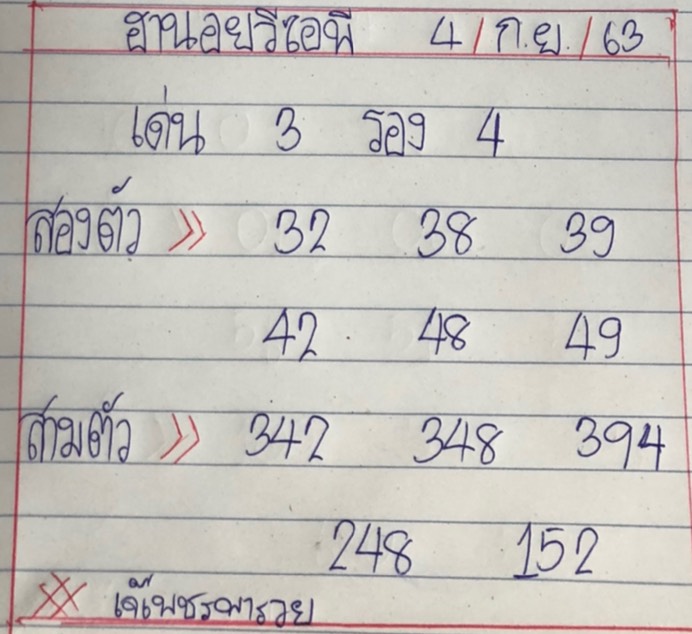 ฮานอยวีไอพี 4/ก.ย./63
เด่น 3 รอง 4
สองตัว >> 32 38 39
42 48 49
สามตัว >> 342 348 394
248 152
เจ๊เพชรพารวย